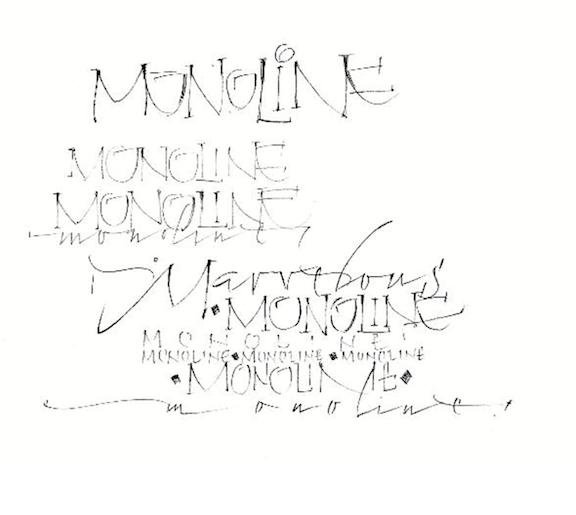 MONOLINE
MONOLINE
MONOLINE
monoline
Marvelous
MONOLINE
MONOLINE
MONOLINE MONOLINE MONOLINE
MONOLINE
monoline